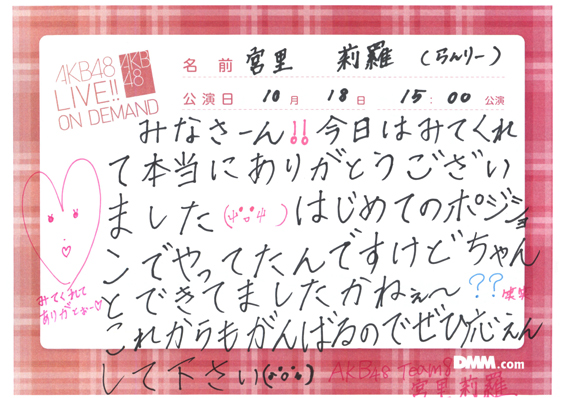 AKB48
LIVE!!
ON DEMAND
AKB
48
名前 宮里 莉羅 (らんりー)
公演日 10月 18日 15:00 公演
みなさーん!!今日はみてくれ
て本当にありがとうござい
ました はじめてのポジショ
ンでやってたんですけどちゃん
とできてましたかねぇ〜??笑笑
これからもがんばるのでぜひ応えん
して下さい
みてくれて
ありがとぉー♡
AKB48 TEAM8
宮里莉羅
DMM.com